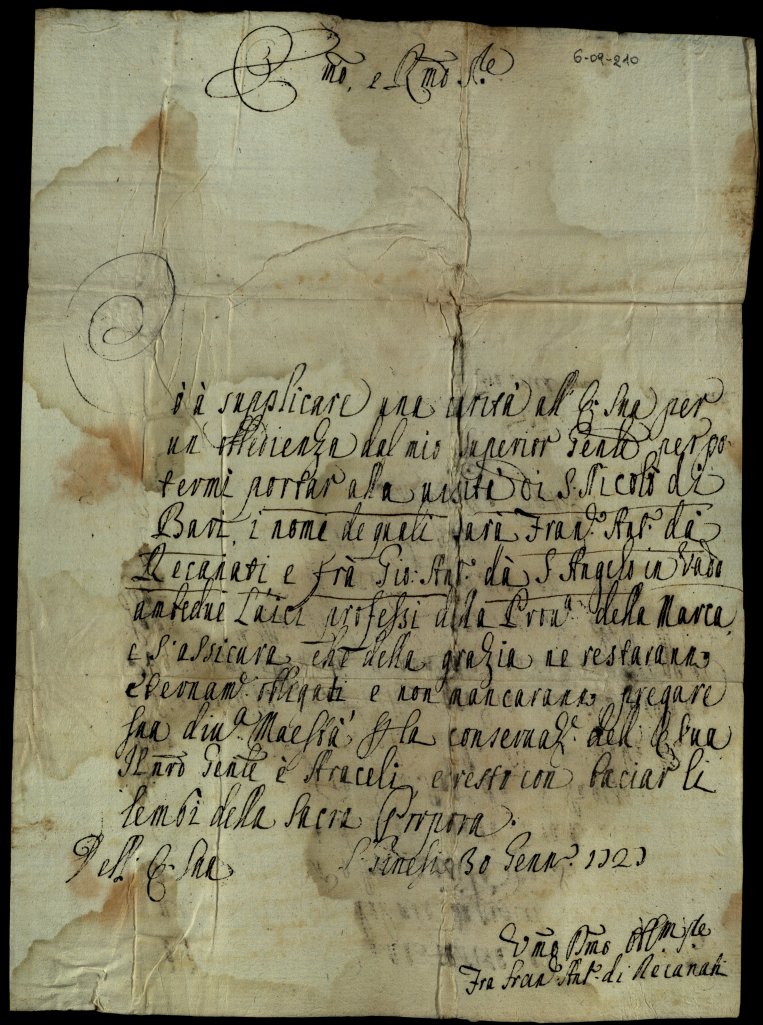 6-09-210
Emo, e Rmo Sre
ò à supplicare una carità all' E. Sua per
un' obbedienza dal mio Superior Genle per po-
termi portar alla visita di S. Nicolò di
Bari, i nomi de quali sarà Fran.o Ant.o dà
Recanati e frà Gio: Ant.o dà S. Angelo in Vado
ambedue Laici professi della Prov.a della Marca,
e S'assicura, che della grazia ne restaranno
eternam.te obligati e non mancarano pregare
sua div.a Maestà la conservaz.e dell' E. Sua
Il nrõ Genle è Araceli, e resto con baciar li
lembi della Sacra Porpora.
Dell' E. Sua
S. Genesi 30 Genn.o 1721
Umo Dmo Obbm
Fra Fran.o Ant.o di Recanati